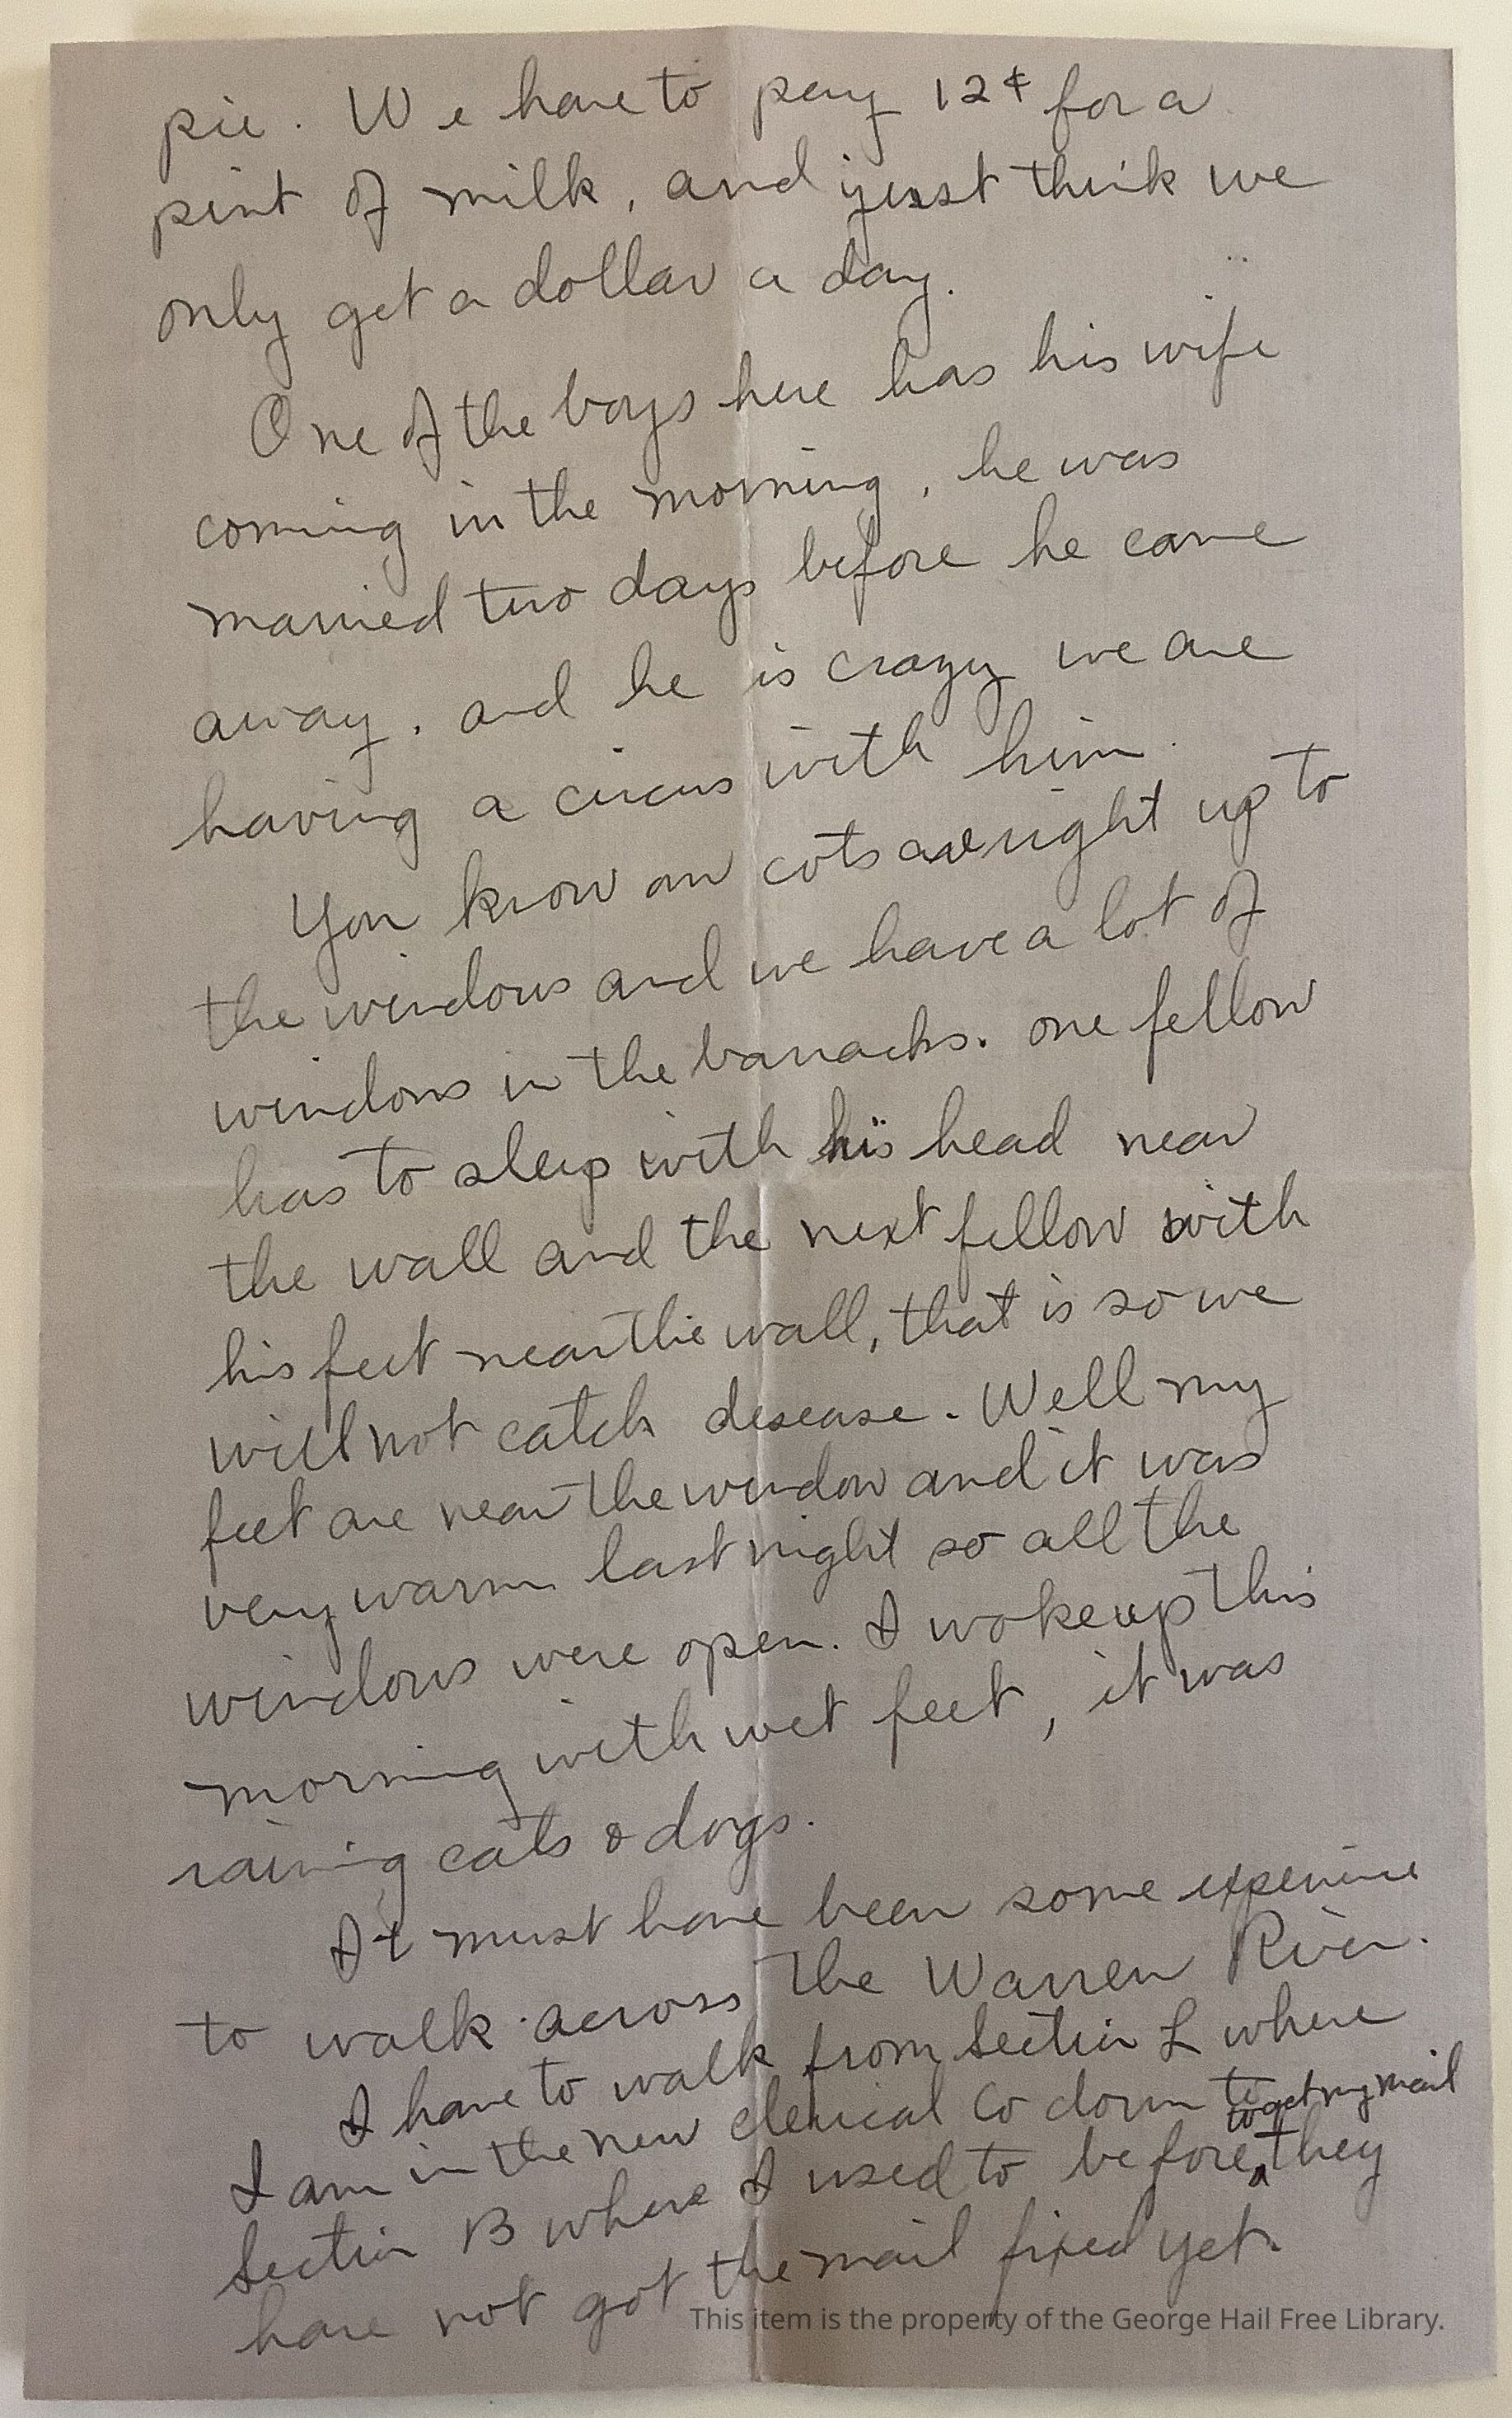 pie. We have to pay 12¢ for a
pint of milk, and just think we
only get a dollar a day.
One of the boys here has his wife
coming in the morning, he was
married two days before he came
away. and he is crazy we are
having a circus with him.
You know our cots are right up to
the windows and we have a lot of
windows in the barracks. one fellow
has to sleep with his head near
the wall and the next fellow with
his feet near the wall, that is so we
will not catch desease. Well my
feet are near the window and it was
very warm last night so all the
windows were open. I woke up this
morning with wet feet, it was
raining cats & dogs.
It must have been some experience
to walk across the Warren River.
I have to walk from Section L where
I am in the new clerical Co down to
to get my mail
Section B where I used to before they
have not got the mail fixed yet.
This item is the property of the George Hail Free Library.